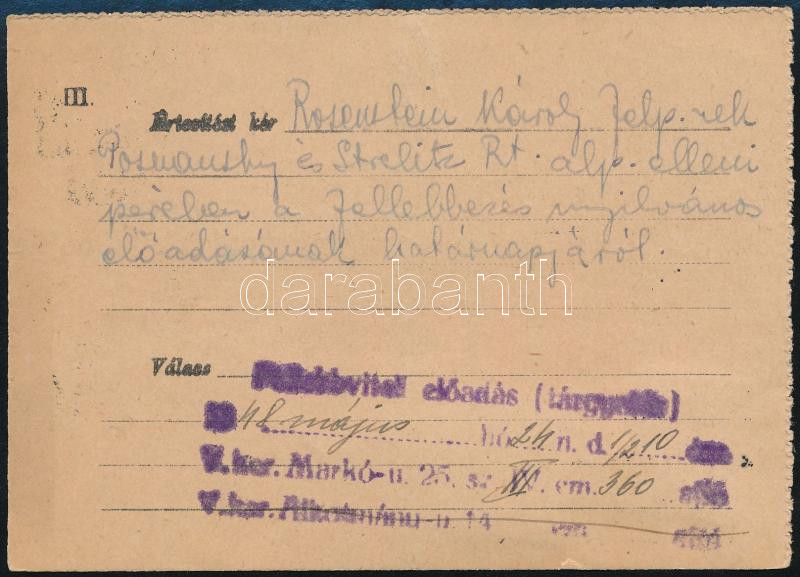 III.
Értesítést kér Rosenstein Károly felp.-nek
Posnansky és Strelitz Rt. alp. elleni
perében a fellebbezés nyilvános
előadásának határnapjáról.
darabanth
Válasz
előadás (tárgyalás)
48 május hó 24 n. d. 1/2 10
V. ker. Markó-u. 25. sz. III. em. 360 ajtó
V. ker. Alkotmány-u. 14 em ajtó